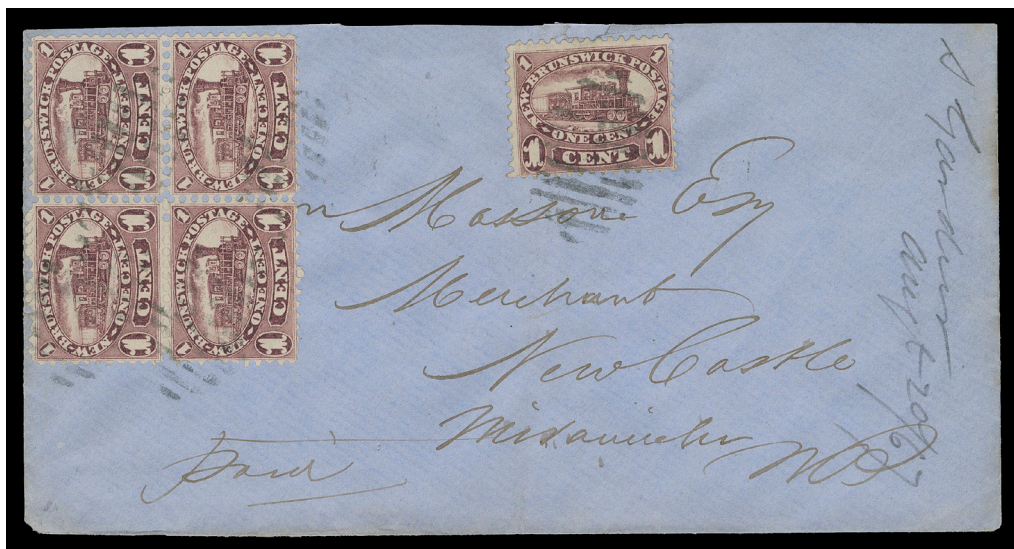 1 1
NEW-BRUNSWICK POSTAGE
ONE CENT
1 CENT 1
1 1
NEW-BRUNSWICK POSTAGE
ONE CENT
1 CENT 1
1 1
NEW-BRUNSWICK POSTAGE
ONE CENT
1 CENT 1
1 1
NEW-BRUNSWICK POSTAGE
ONE CENT
1 CENT 1
1 1
NEW-BRUNSWICK POSTAGE
ONE CENT
1 CENT 1
Esq
Merchant
New Castle
Miramichi
Paid